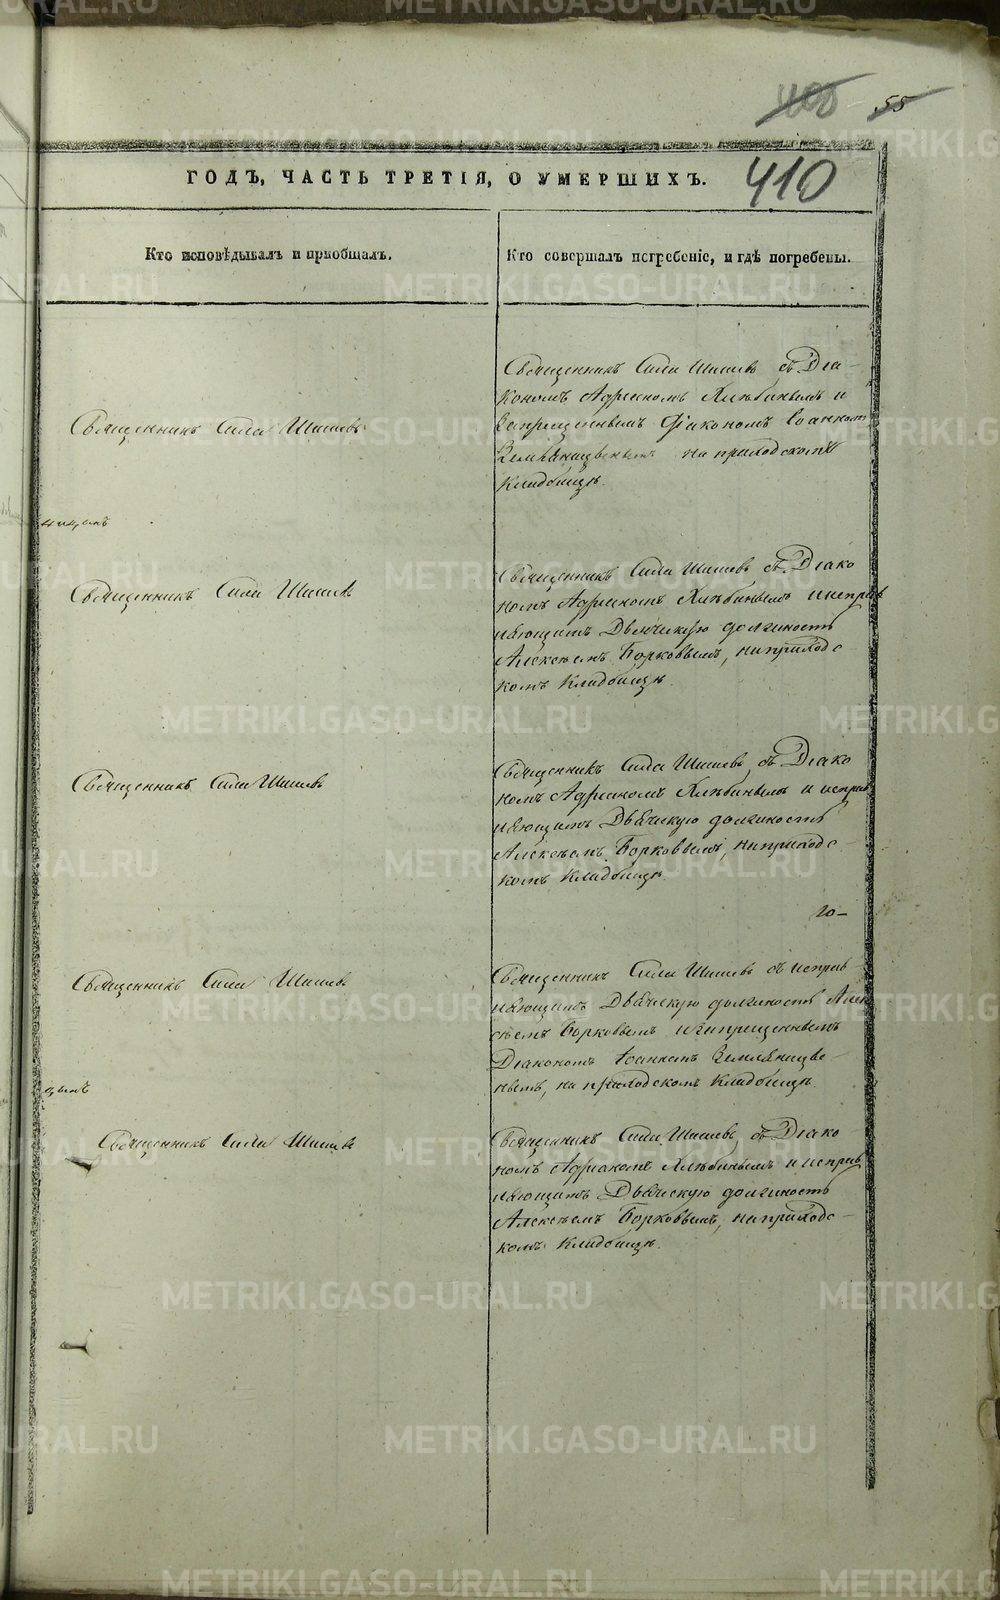 55
410
ГОДЪ, ЧАСТЬ ТРЕТІЯ, О УМЕРШИХЪ.
Кто исповѣдывалъ и пріобщалъ.
Кто совершалъ погребеніе, и гдѣ погребены.
Священникъ Сила Шишевъ
Священникъ Сила Шишевъ съ Діа-
кономъ Адріаномъ Хлѣбинымъ и
Запрещеннымъ Діакономъ Іоанномъ
Земляницынымъ на приходскомъ
Кладбищѣ.
Священникъ Сила Шишевъ
Священникъ Сила Шишевъ съ Діако
номъ Адріаномъ Хлѣбинымъ и исправ
ляющимъ Дьяческую должность
Алексѣемъ Борковымъ, на приходс-
комъ Кладбищѣ.
Священникъ Сила Шишевъ
Священникъ Сила Шишевъ съ Діако
номъ Адріаномъ Хлѣбинымъ и исправ
ляющимъ Дьяческую должность
Алексѣемъ Борковымъ, на приходс-
комъ Кладбищѣ.
Священникъ Сила Шишевъ
Священникъ Сила Шишевъ съ исправ-
ляющимъ Дьяческую должность Алек
сѣемъ Борковымъ и запрещеннымъ
Діакономъ Іоанномъ
на приходскомъ Кладбищѣ.
Священникъ Сила Шишевъ
Священникъ Сила Шишевъ съ Діако
номъ Адріаномъ Хлѣбинымъ и исправ
ляющимъ Дьяческую должность
Алексѣемъ Борковымъ, на приходс-
комъ Кладбищѣ.
METRIKI.GASO-URAL.RU